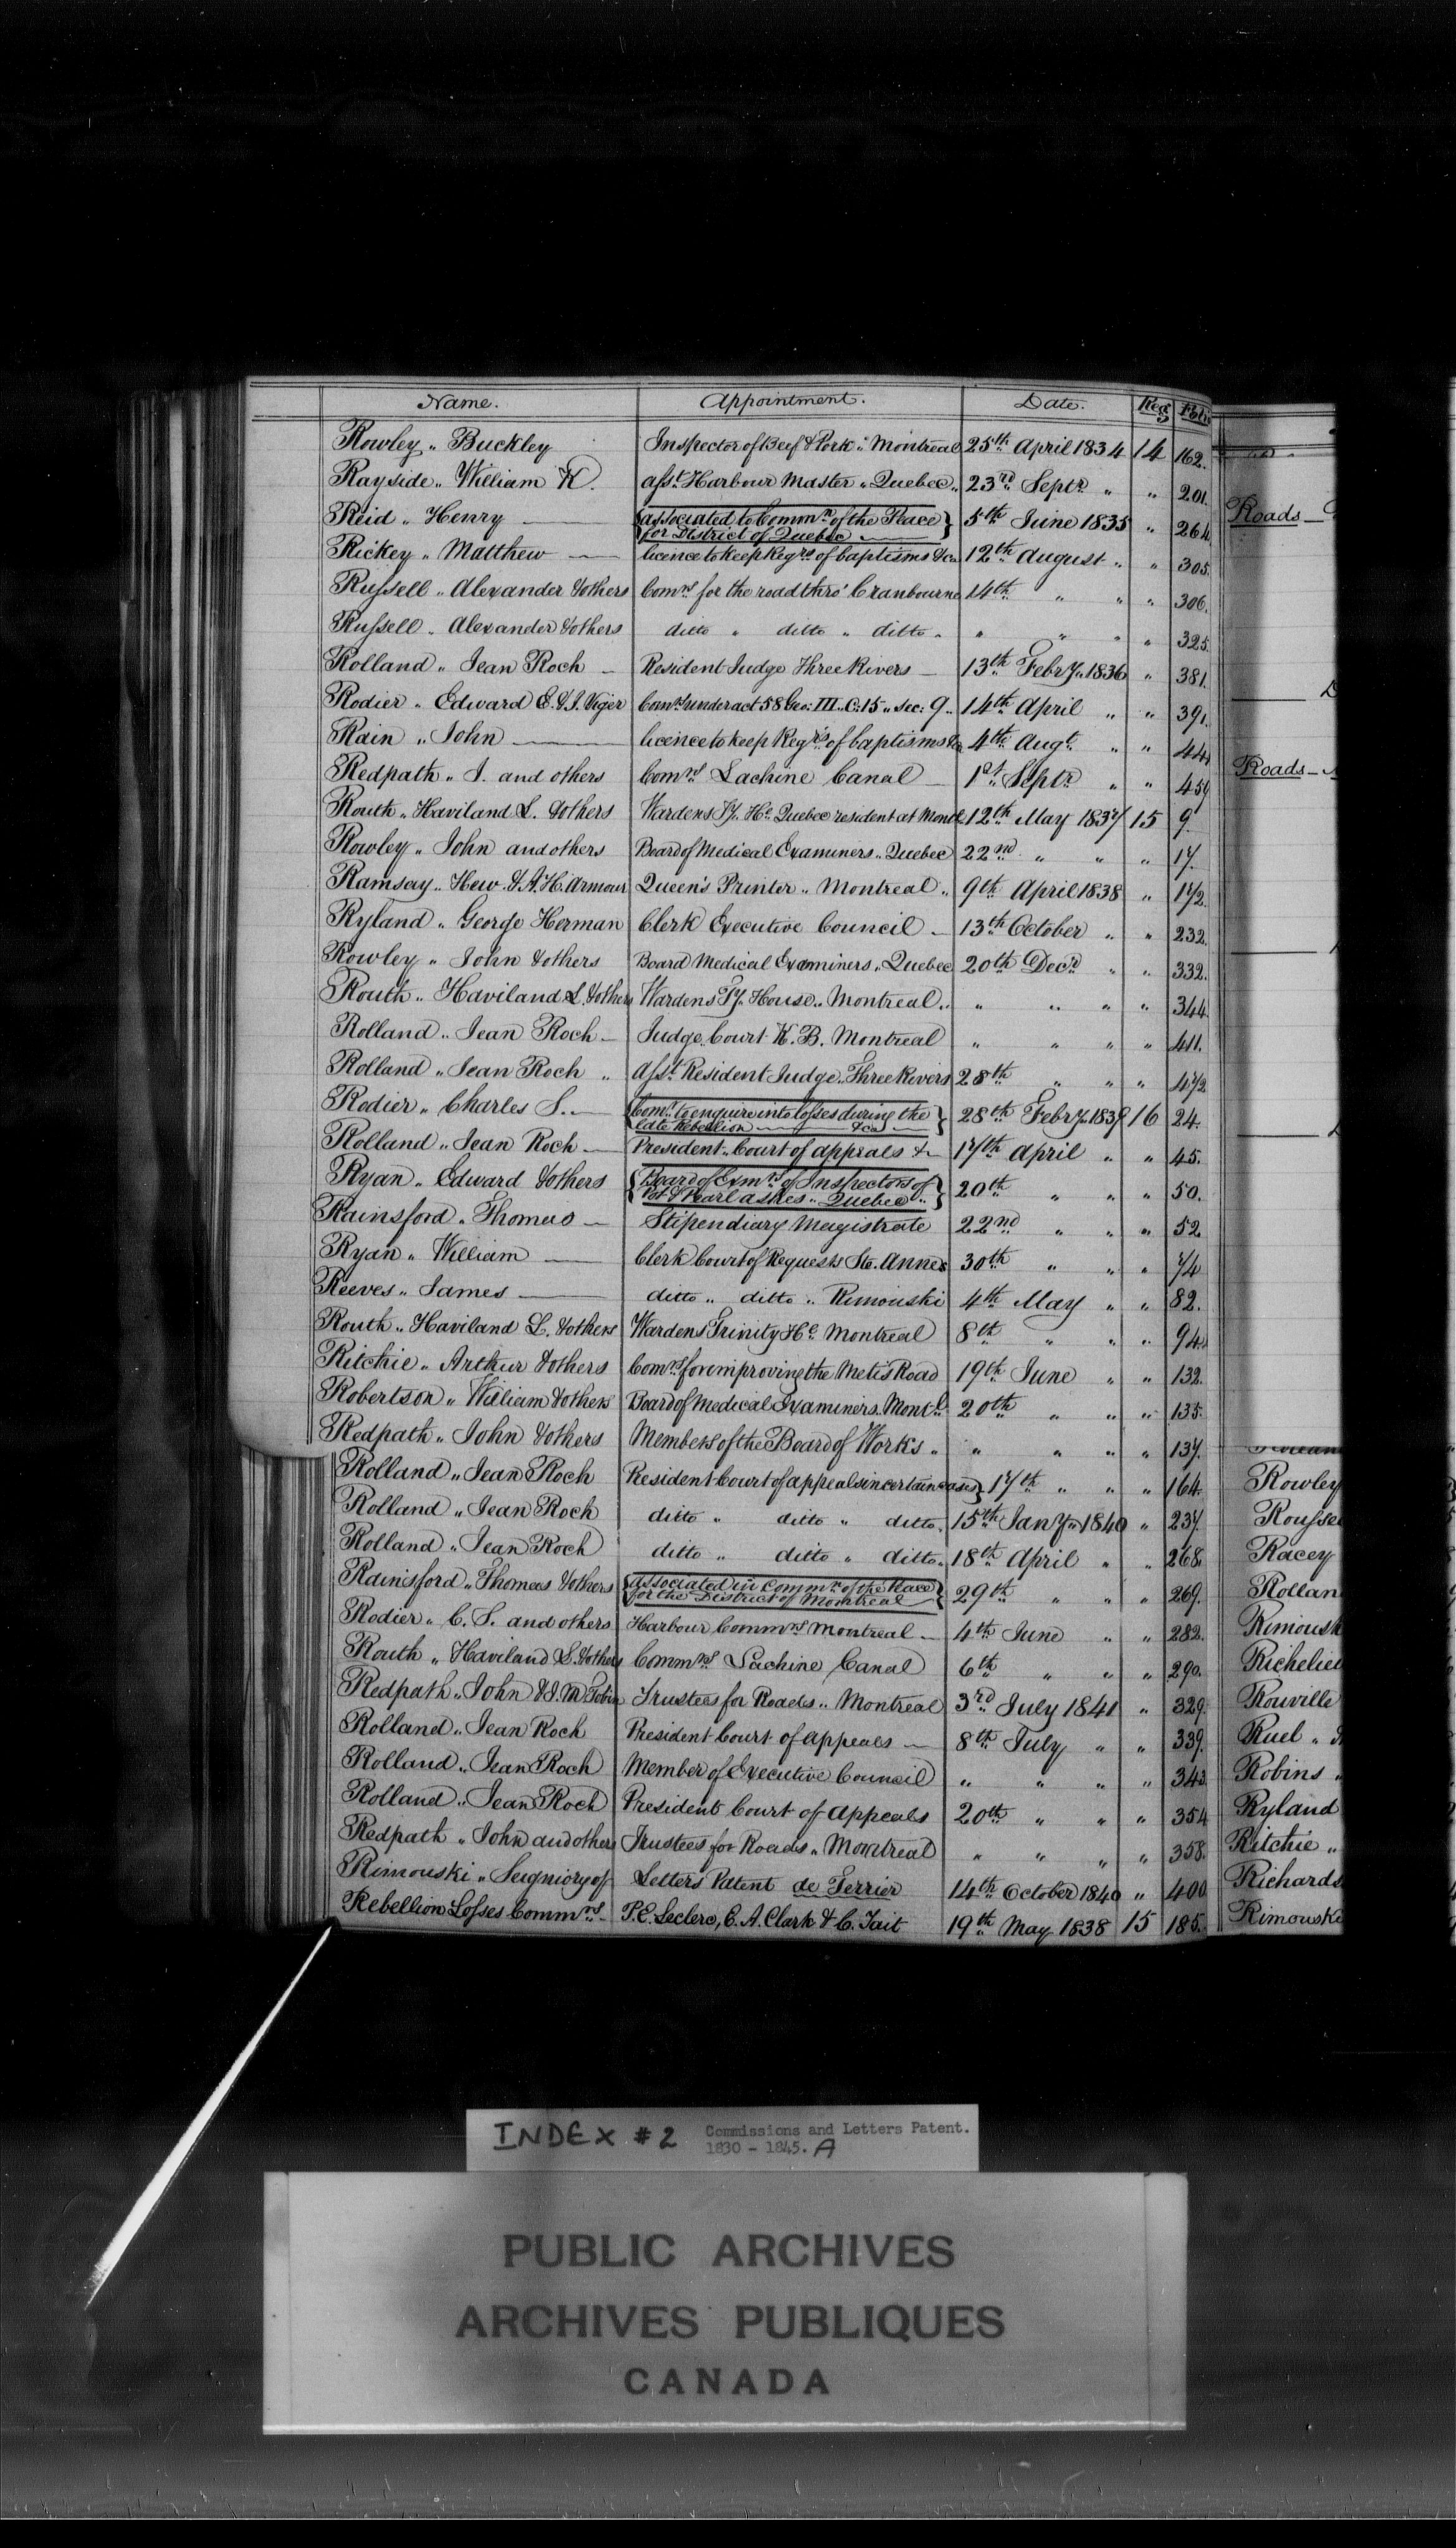 Name. Appointment. Date. Reg Folio
Rowley „ Buckley Inspector of Beef & Pork „ Montreal 25th April 1834 14 162.
Rayside „ William K. Asst Harbour Master „ Quebec „ 23rd Septr „ „ 201.
Reid „ Henry — associated to Commn of the Peace 5th June 1835 „ 264
for District of Quebec —
Rickey „ Matthew — licence to keep Regrs of baptisms &ca 12th August „ „ 305.
Russell „ Alexander & others Comrs for the road thro' Cranbourne 14th „ „ „ 306.
Russell „ Alexander & others ditto „ ditto „ ditto „ „ „ „ „ 325.
Rolland „ Jean Roch — Resident Judge Three Rivers — 13th Febry „ 1836 „ 381.
Rodier „ Edward E. & J. Viger Comrs under act 58 Geo: III. C: 15 „ sec: 9 „ 14th April „ „ 391.
Rain „ John — licence to keep Regrs of baptisms &ca 4th Augt „ „ 44
Redpath „ J. and others Comrs Lachine Canal — 1st Septr „ „ 459
Routh „ Haviland L. & others Wardens Ty. He. Quebec resident at Montl 12th May 1837 15 9.
Rowley „ John and others Board of Medical Examiners „ Quebec 22nd „ „ „ 17.
Ramsay „ Hew. & A. H. Armour Queen's Printer „ Montreal „ 9th April 1838 „ 172.
Ryland „ George Herman Clerk Executive Council — 13th October „ „ 232.
Rowley „ John & others Board Medical Examiners „ Quebec 20th Decr „ „ 332.
Routh „ Haviland L. & others Wardens Ty. House „ Montreal „ „ „ „ „ 344.
Rolland „ Jean Roch — Judge Court K. B. Montreal „ „ „ „ 411.
Rolland „ Jean Roch „ Asst Resident Judge „ Three Rivers 28th „ „ „ 472
Rodier „ Charles S. — Comr to enquire into losses during the 28th Febry 1839 16 24.
late Rebellion — &ca —
Rolland „ Jean Roch — President „ Court of appeals &— 17th April „ „ 45.
Ryan „ Edward & others Board of Exmrs of Inspectors of 20th „ „ „ 50.
Pot & Pearl ashes „ Quebec „
Rainsford „ Thomas — Stipendiary Magistrate 22nd „ „ „ 52
Ryan „ William — Clerk Court of Requests Ste. Annes 30th „ „ „ 74
Reeves „ James — ditto „ ditto „ Rimouski 4th May „ „ 82.
Routh „ Haviland L. & others Wardens Trinity He. Montreal 8th „ „ „ 94.
Ritchie „ Arthur & others Comrs for improving the Metis Road 19th June „ „ 132.
Robertson „ William & others Board of Medical Examiners. Montl. 20th „ „ „ 135.
Redpath „ John & others Members of the Board of Works „ „ „ „ „ 137.
Rolland „ Jean Roch President Court of appeals in certain cases 17th „ „ „ 164.
Rolland „ Jean Roch ditto „ ditto „ ditto „ 15th Jany 1840 „ 237.
Rolland „ Jean Roch ditto „ ditto „ ditto „ 18th April „ „ 268.
Rainsford „ Thomas & others associated in Commn of the Peace 29th „ „ „ 269.
for the District of Montreal
Rodier „ C. S. and others Harbour Commrs Montreal — 4th June „ „ 282.
Routh „ Haviland L. & others Commrs Lachine Canal 6th „ „ „ 290.
Redpath „ John & J. M. Tobin Trustees for Roads „ Montreal 3rd July 1841 „ 329.
Rolland „ Jean Roch President Court of Appeals — 8th July „ „ 339.
Rolland „ Jean Roch Member of Executive Council „ „ „ „ 343.
Rolland „ Jean Roch President Court of Appeals 20th „ „ „ 354
Redpath „ John and others Trustees for Roads „ Montreal „ „ „ „ 358.
Rimouski „ Seigniory of Letters Patent de Terrier 14th October 1840 „ 400
Rebellion Losses Commrs P. E. Leclerc, C. A. Clark & C. Tait 19th May 1838 15 185.
Roads —
Roads —
Rowley
Racey
Rollan
Rimousk
Richelieu
Rouville
Ruel „
Robins „
Ryland
Ritchie „
Richards
Rimouski
INDEX #2 Commissions and Letters Patent.
1830 - 1845. A
PUBLIC ARCHIVES
ARCHIVES PUBLIQUES
CANADA